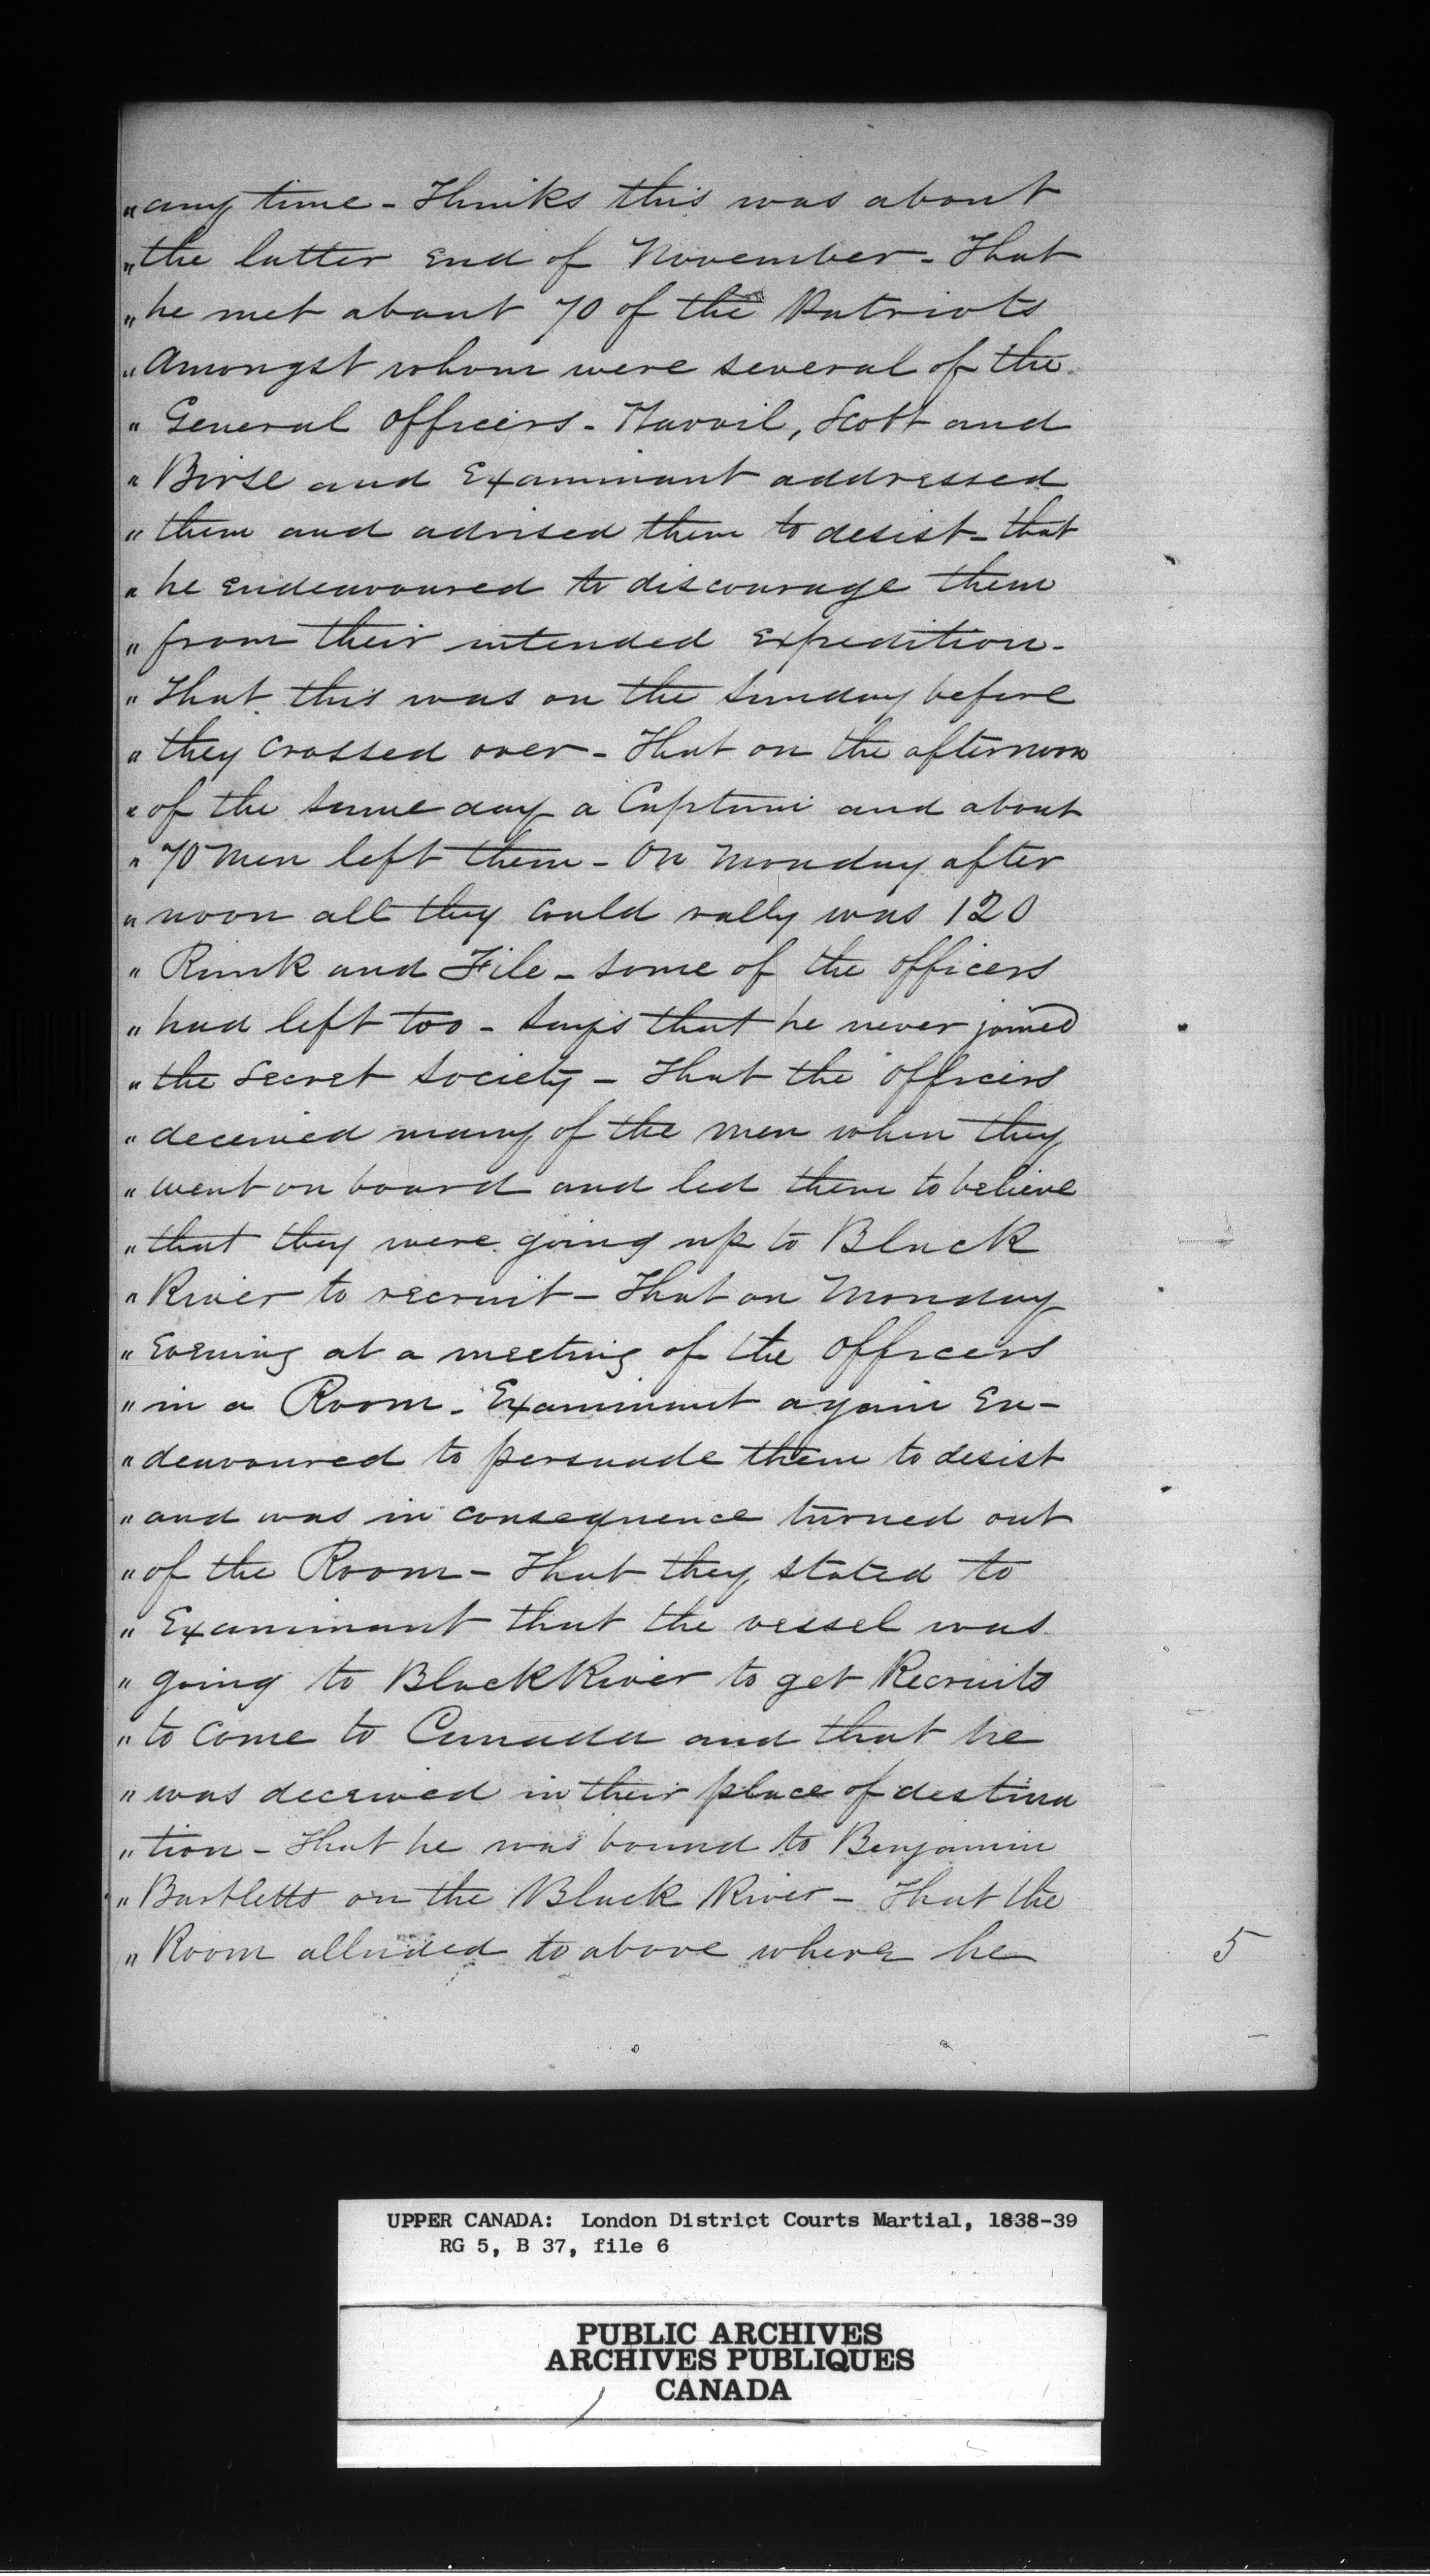 "any time - Thinks this was about
"the latter End of November - That
"he met about 70 of the Patriots
"Amongst whom were several of the
"General Officers - Harvil, Scott and
"Birse and Examinant addressed
"them and advised them to desist - that
"he Endeavoured to discourage them
"from their intended Expedition -
"That this was on the Sunday before
"they Crossed over - That on the afternoon
"of the same day a Captain and about
"70 Men left them - On Monday after
"noon all they Could rally was 120
"Rank and File - Some of the officers
"had left too - Says that he never joined
"the Secret Society - That the Officers
"deceived many of the men when they
"went on board and led them to believe
"that they were going up to Black
"River to recruit - That on Monday
"Evening at a meeting of the Officers
"in a Room - Examinant again En-
"deavoured to persuade them to desist
"and was in Consequence turned out
"of the Room - That they stated to
"Examinant that the vessel was
"going to Black River to get Recruits
"to Come to Canada and that he
"was deceived in their place of destina
"tion - That he was bound to Benjamin
"Bartletts on the Black River - That the
"Room alluded to above where he
5
UPPER CANADA: London District Courts Martial, 1838-39
RG 5, B 37, file 6
PUBLIC ARCHIVES
ARCHIVES PUBLIQUES
CANADA